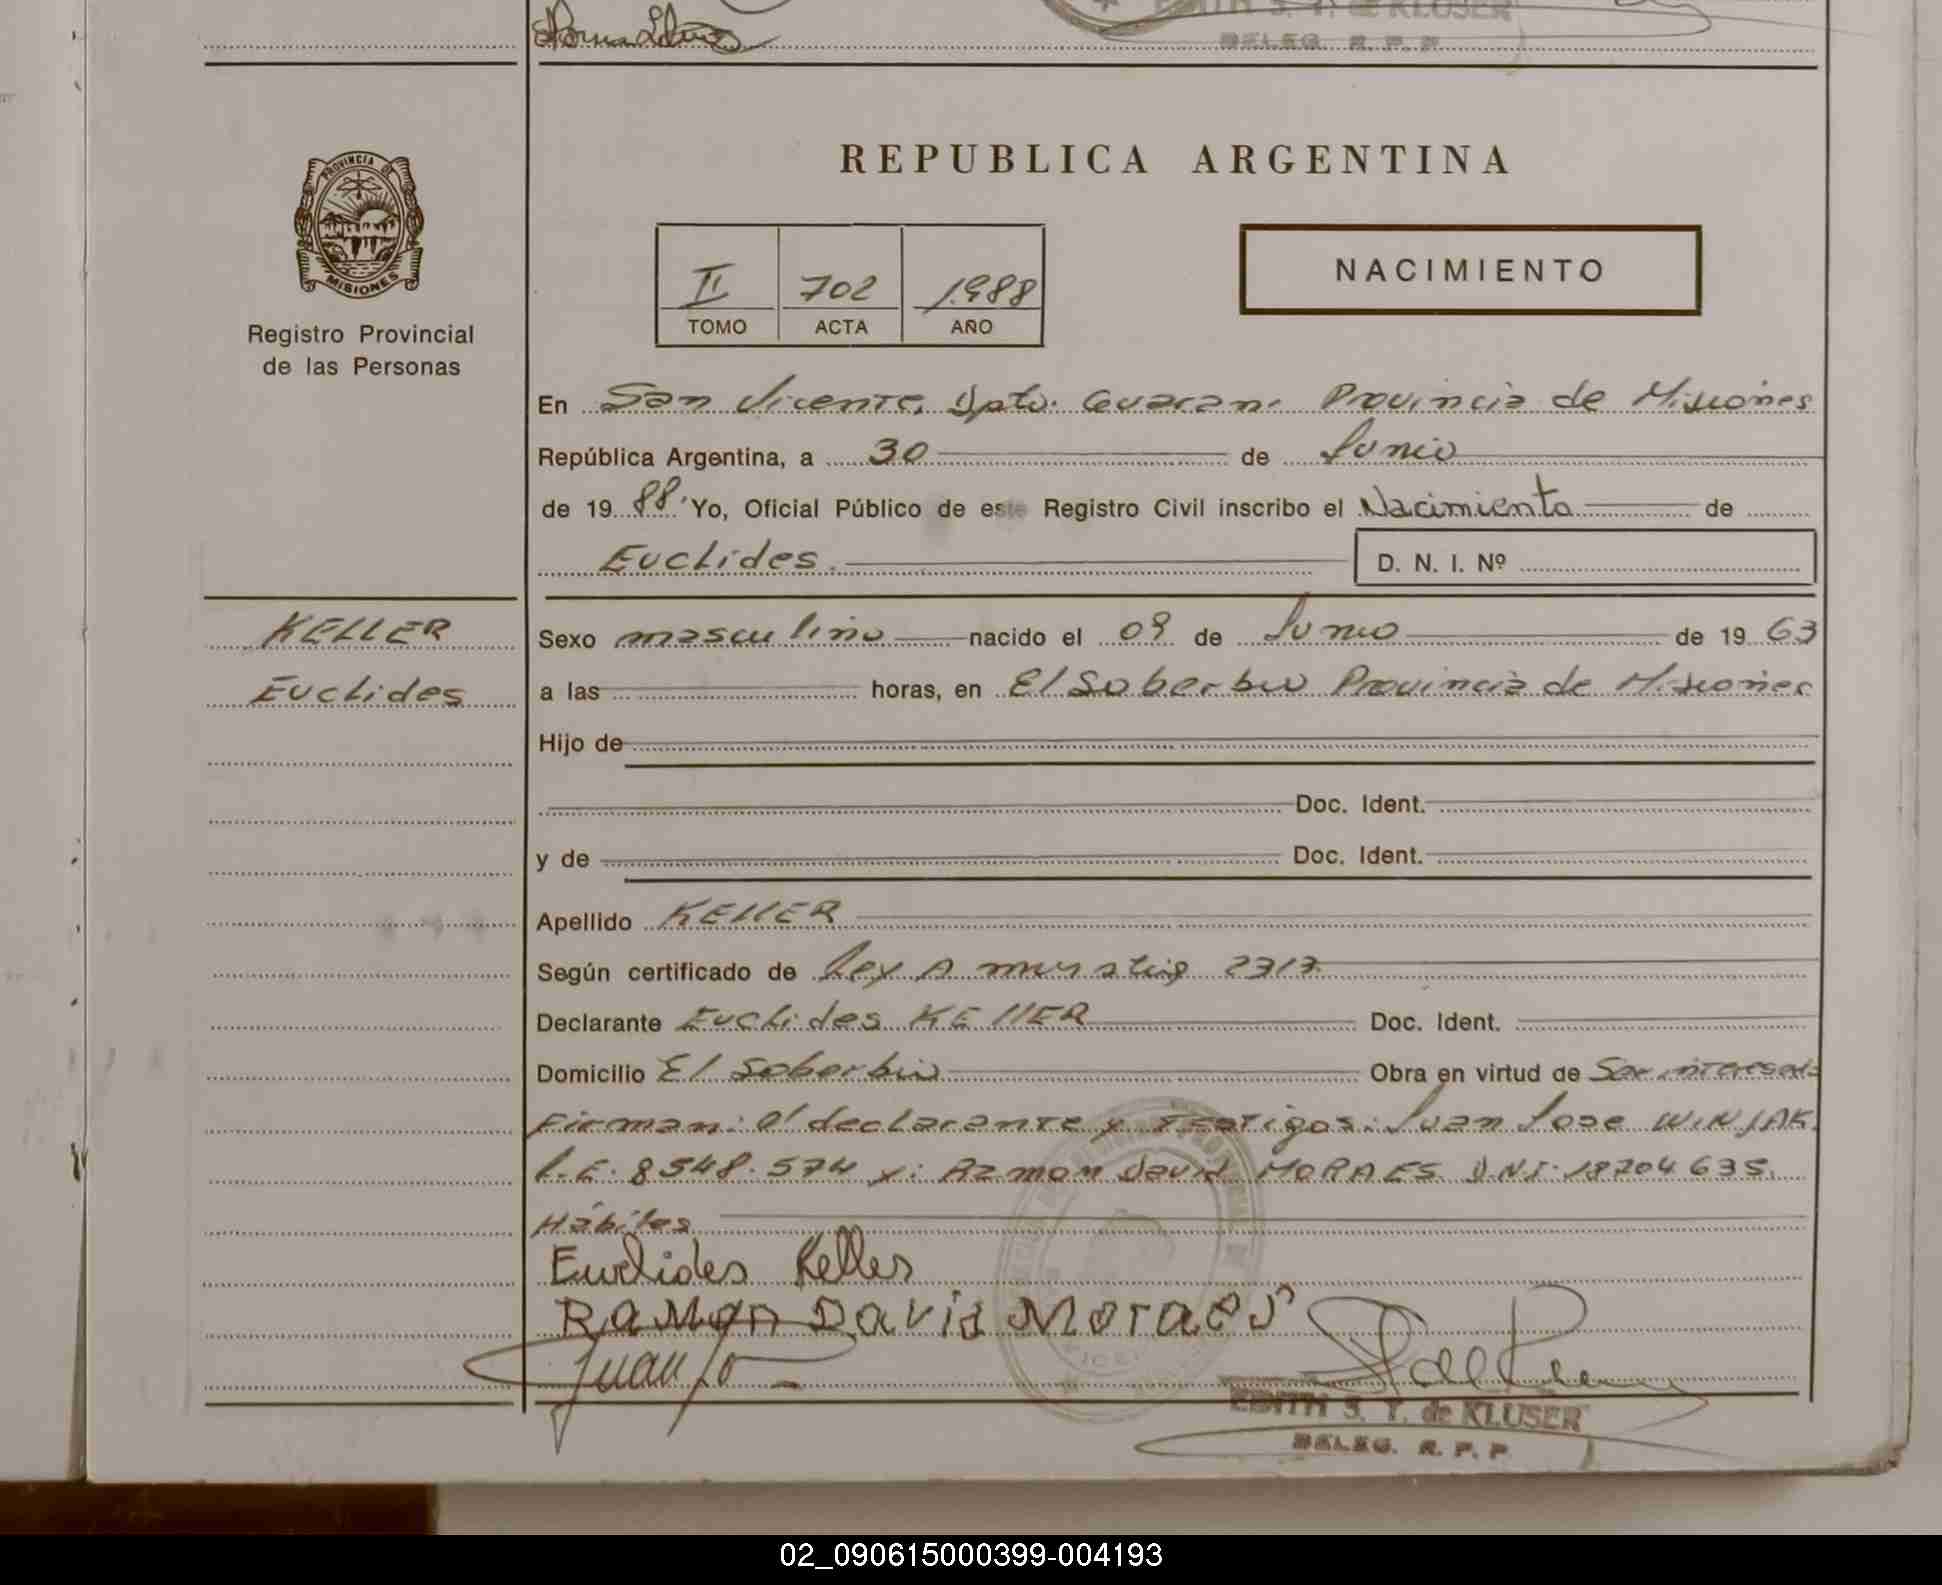 EDITH S. T. de KLUSER
DELEG. R. P. P.
PROVINCIA DE
MISIONES
Registro Provincial
de las Personas
REPUBLICA ARGENTINA
II 702 1988
TOMO ACTA AÑO
NACIMIENTO
En San Vicente, Dpto. Guarani Provincia de Misiones
República Argentina, a 30 de Junio
de 19 88, Yo, Oficial Público de este Registro Civil inscribo el Nacimiento de
Euclides. D. N. I. Nº
KELLER
Euclides
Sexo masculino nacido el 09 de Junio de 19 63
a las horas, en El Soberbio Provincia de Misiones
Hijo de
Doc. Ident.
y de Doc. Ident.
Apellido KELLER
Según certificado de Ley Amnistia 2717
Declarante Euclides KELLER Doc. Ident.
Domicilio El Soberbio Obra en virtud de Ser interesado
Firman: El declarante y Testigos: Juan Jose WINJAK.
L.E. 8548.574 y: Ramon David MORAES D.N.I. 18704.635.
Hábiles
Euclides Keller
RaMon David Moraes
Juan Jo
EDITH S. T. de KLUSER
DELEG. R. P. P.
02_090615000399-004193